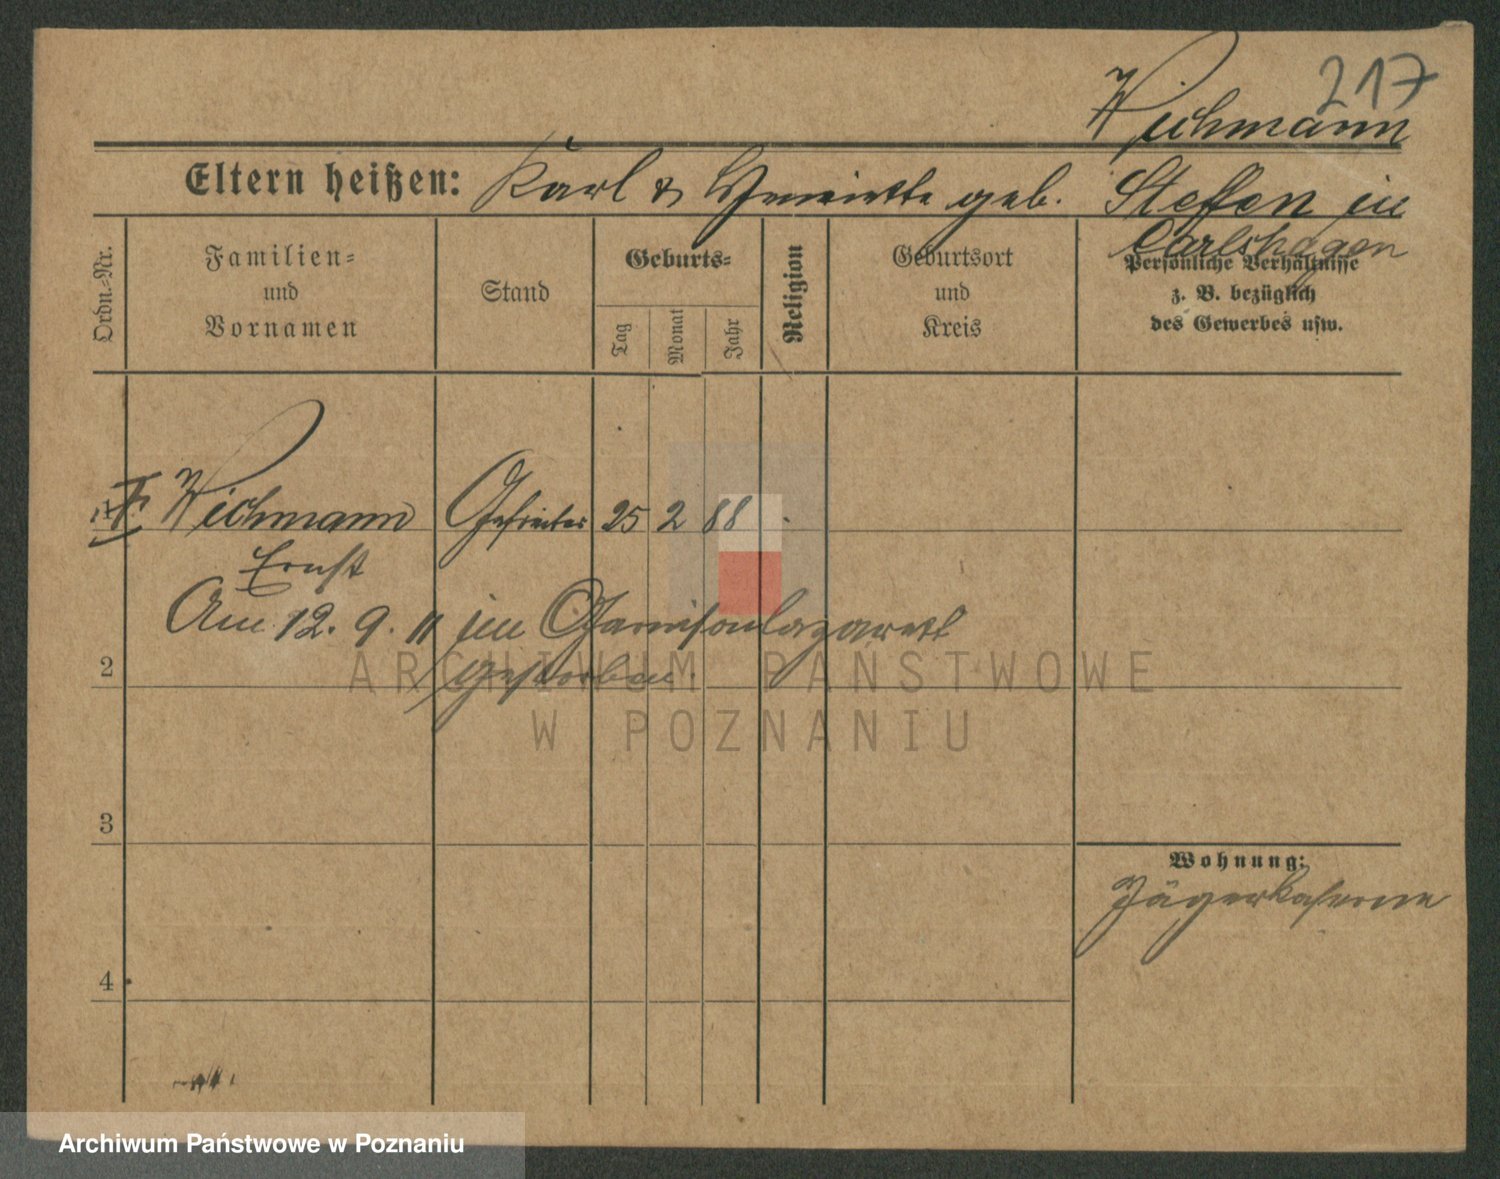 217
Wichmann
Eltern heißen: Karl & Henriette geb. Steffen in
Carlshagen
Ordn.-Nr.
Familien-
und
Vornamen
Stand
Geburts-
Tag
Monat
Jahr
Religion
Geburtsort
und
Kreis
Persönliche Verhältnisse
z. B. bezüglich
des Gewerbes usw.
1 Wichmann Gefreiter 25 2 88
Ernst
Am 12. 9. 11 im Garnisonlazarett
2 gestorben.
ARCHIWUM PAŃSTWOWE
W POZNANIU
3
Wohnung:
Jägerkaserne
4
Archiwum Państwowe w Poznaniu